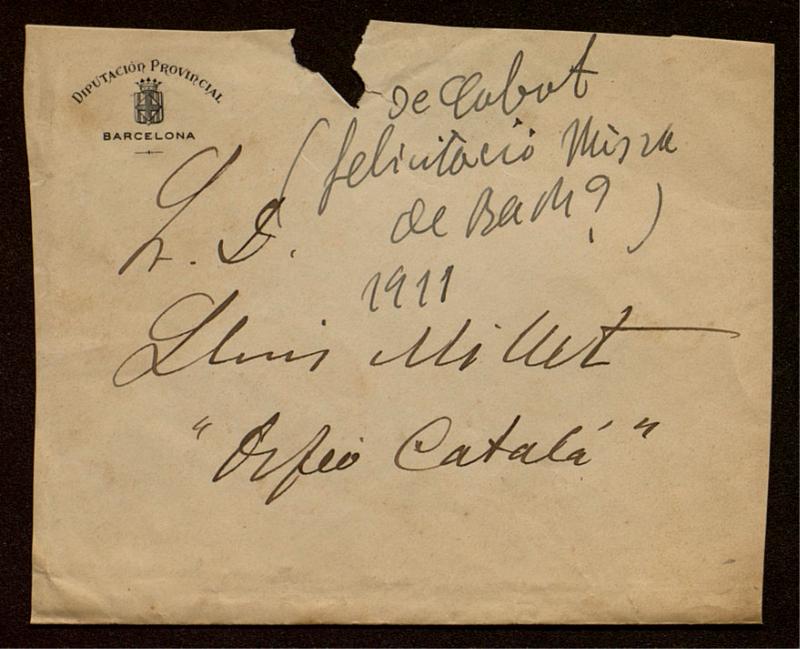 DIPUTACIÓN PROVINCIAL
BARCELONA
de Cabot
(felicitació Missa
de Bach?)
1911
S. D.
Lluis Millet
"Orfeó Catalá"